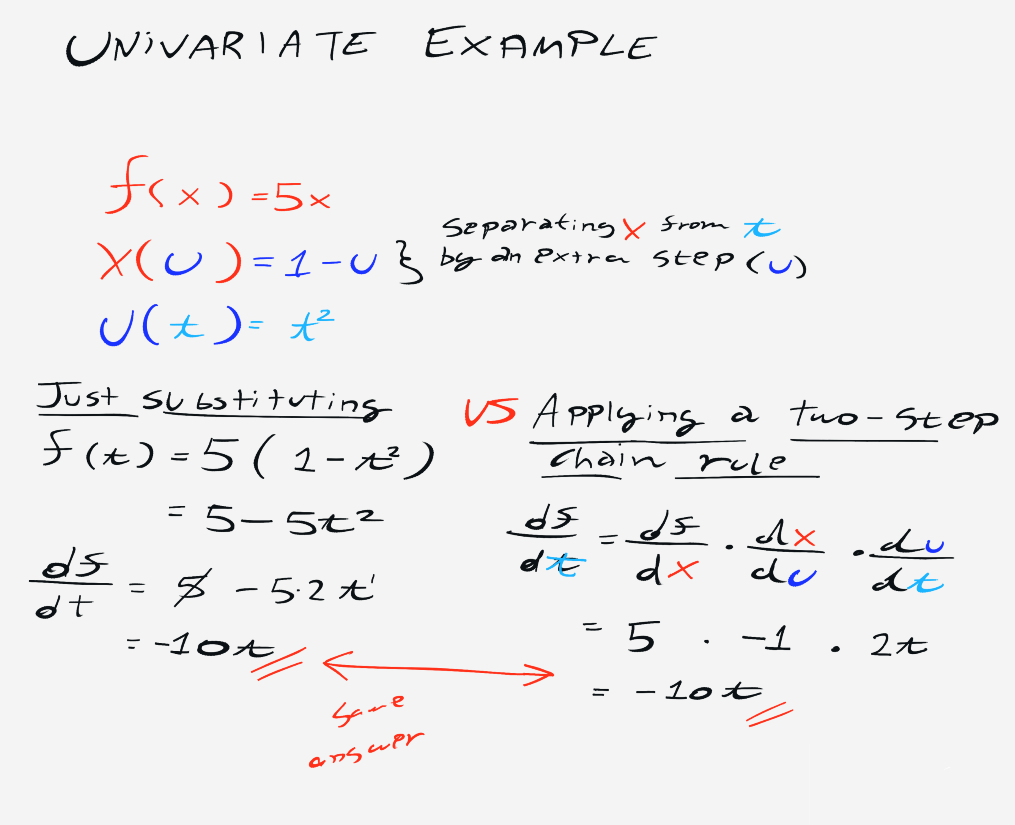 UNIVARIATE EXAMPLE
f(x) = 5x
x(u) = 1 - u }
u(t) = t²
separating x from t
by an extra step (u)
Just substituting
f(t) = 5(1 - t²)
= 5 - 5t²
df/dt = 5 - 5·2t¹
= -10t
VS
Applying a two-step
chain rule
df/dt = df/dx · dx/du · du/dt
= 5 · -1 · 2t
= -10t
same
answer